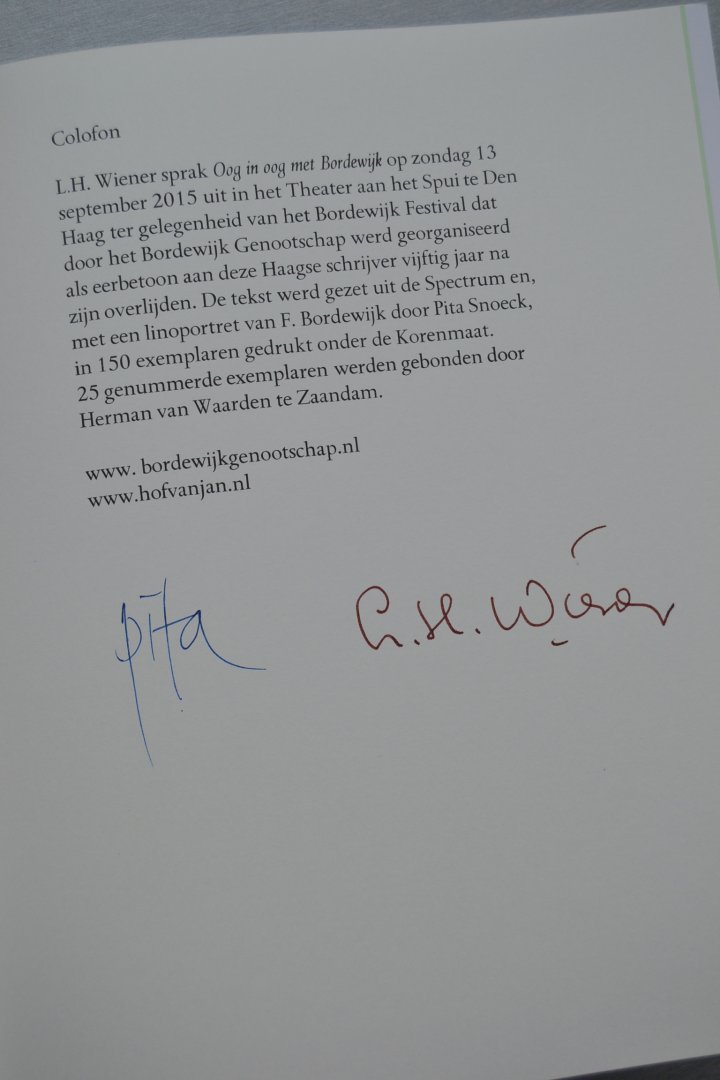 Colofon
L.H. Wiener sprak Oog in oog met Bordewijk op zondag 13
september 2015 uit in het Theater aan het Spui te Den
Haag ter gelegenheid van het Bordewijk Festival dat
door het Bordewijk Genootschap werd georganiseerd
als eerbetoon aan deze Haagse schrijver vijftig jaar na
zijn overlijden. De tekst werd gezet uit de Spectrum en,
met een linoportret van F. Bordewijk door Pita Snoeck,
in 150 exemplaren gedrukt onder de Korenmaat.
25 genummerde exemplaren werden gebonden door
Herman van Waarden te Zaandam.
www. bordewijkgenootschap.nl
www.hofvanjan.nl
pita
L.H. Wiener